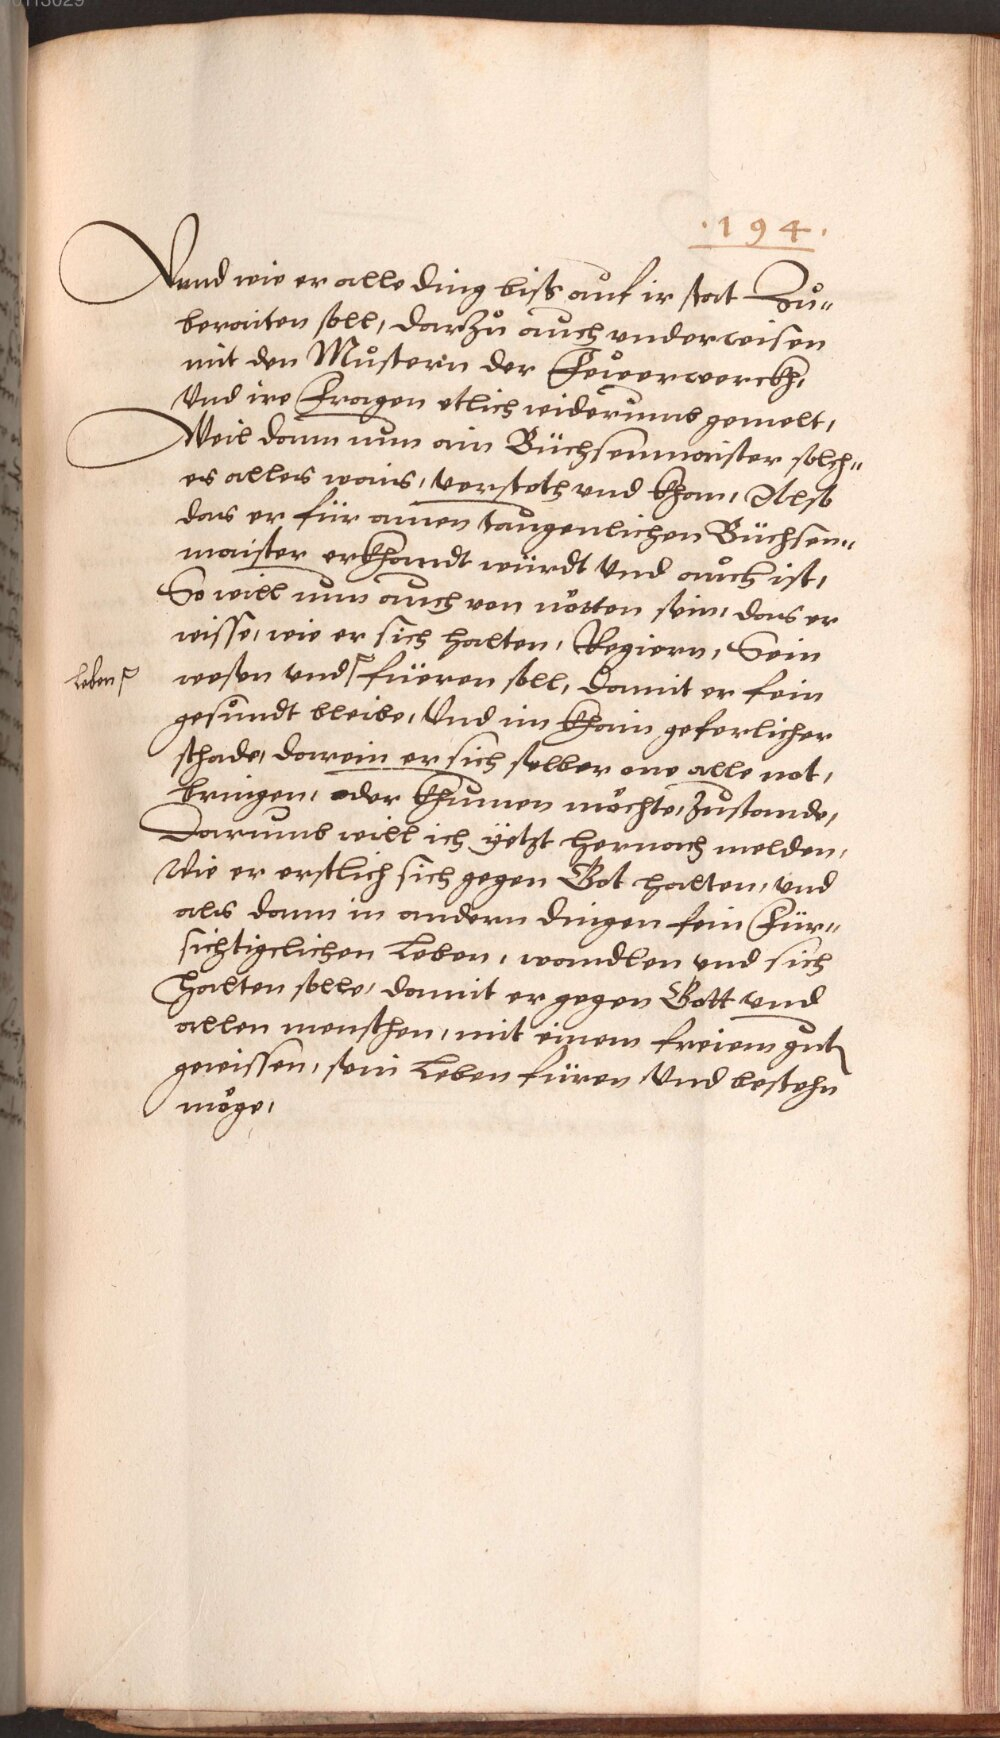 .194.
Vnnd wie er alle ding biss auf ir stat Zů„
beraiten soll, darZů auch vnderweisen
mit den Mustern der Feuerwerckh,
Vnd ire Fragen etlich widerumb gemelt,
Weil dann nun ain Büchsenmaister solch„
es alles wais, versteth vnd khan, Alß
das er für ainen taugenlichen Büchsen„
maister erkhandt würdt Vnd auch ist,
So will nun auch von nötten sein, das er
wisse, wie er sich halten, Regiern, Sein
leben
wesen vnd füeren soll, damit er fein
gesundt bleibe, Vnd im khain geferlicher
schade, darein er sich selber one alle not,
bringen, oder khumen möchte, Zustande,
Darumb will ich yetzt hernach melden,
Wie er erstlich sich gegen Got halten, vnd
als dann in andern dingen fein Für„
sichtigclichen Leben, wandlen vnd sich
halten solle, damit er gegen Gott vnd
allen menschen, mit einem freiem gutn
gewissen, sein Leben füren Vnd bestehn
möge,